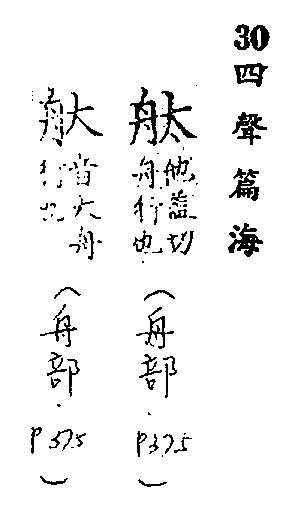 30四聲篇海
舦他蓋切舟行也（舟部．P375）
舦音大舟行也（舟部．P375）